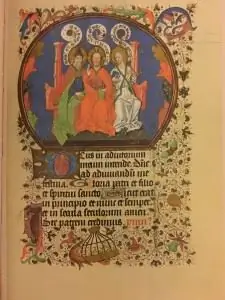 Deus in adiutorium
meum intende. Dñe
ad adiuuandum me
festina. Gloria patri et filio
et spiritui sancto. Sicut erat
in principio et nunc et semper
et in secula seculorum amen.
patrem credimus